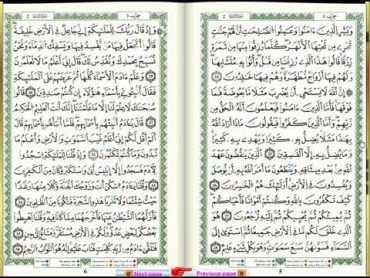 وَبَشِّرِ ٱلَّذِينَ ءَامَنُوا۟ وَعَمِلُوا۟ ٱلصَّٰلِحَٰتِ أَنَّ لَهُمْ جَنَّٰتٍ
تَجْرِى مِن تَحْتِهَا ٱلْأَنْهَٰرُ كُلَّمَا رُزِقُوا۟ مِنْهَا مِن ثَمَرَةٍ
رِّزْقًا قَالُوا۟ هَٰذَا ٱلَّذِى رُزِقْنَا مِن قَبْلُ وَأُتُوا۟ بِهِۦ مُتَشَٰبِهًا
وَلَهُمْ فِيهَآ أَزْوَٰجٌ مُّطَهَّرَةٌ وَهُمْ فِيهَا خَٰلِدُونَ
إِنَّ ٱللَّهَ لَا يَسْتَحْىِۦٓ أَن يَضْرِبَ مَثَلًا مَّا بَعُوضَةً فَمَا
فَوْقَهَا فَأَمَّا ٱلَّذِينَ ءَامَنُوا۟ فَيَعْلَمُونَ أَنَّهُ ٱلْحَقُّ مِن
رَّبِّهِمْ وَأَمَّا ٱلَّذِينَ كَفَرُوا۟ فَيَقُولُونَ مَاذَآ
أَرَادَ ٱللَّهُ بِهَٰذَا مَثَلًا يُضِلُّ بِهِۦ كَثِيرًا وَيَهْدِى بِهِۦ كَثِيرًا
وَمَا يُضِلُّ بِهِۦٓ إِلَّا ٱلْفَٰسِقِينَ ٱلَّذِينَ يَنقُضُونَ عَهْدَ
ٱللَّهِ مِنۢ بَعْدِ مِيثَٰقِهِۦ وَيَقْطَعُونَ مَآ أَمَرَ ٱللَّهُ بِهِۦٓ أَن يُوصَلَ
وَيُفْسِدُونَ فِى ٱلْأَرْضِ أُو۟لَٰٓئِكَ هُمُ ٱلْخَٰسِرُونَ
كَيْفَ تَكْفُرُونَ بِٱللَّهِ وَكُنتُمْ أَمْوَٰتًا فَأَحْيَٰكُمْ
ثُمَّ يُمِيتُكُمْ ثُمَّ يُحْيِيكُمْ ثُمَّ إِلَيْهِ تُرْجَعُونَ هُوَ ٱلَّذِى
خَلَقَ لَكُم مَّا فِى ٱلْأَرْضِ جَمِيعًا ثُمَّ ٱسْتَوَىٰٓ إِلَى
ٱلسَّمَآءِ فَسَوَّىٰهُنَّ سَبْعَ سَمَٰوَٰتٍ وَهُوَ بِكُلِّ شَىْءٍ عَلِيمٌ
وَإِذْ قَالَ رَبُّكَ لِلْمَلَٰٓئِكَةِ إِنِّى جَاعِلٌ فِى ٱلْأَرْضِ خَلِيفَةً
قَالُوٓا۟ أَتَجْعَلُ فِيهَا مَن يُفْسِدُ فِيهَا وَيَسْفِكُ ٱلدِّمَآءَ وَنَحْنُ
نُسَبِّحُ بِحَمْدِكَ وَنُقَدِّسُ لَكَ قَالَ إِنِّىٓ أَعْلَمُ مَا لَا تَعْلَمُونَ
وَعَلَّمَ ءَادَمَ ٱلْأَسْمَآءَ كُلَّهَا ثُمَّ عَرَضَهُمْ عَلَى ٱلْمَلَٰٓئِكَةِ
فَقَالَ أَنۢبِـُٔونِى بِأَسْمَآءِ هَٰٓؤُلَآءِ إِن كُنتُمْ صَٰدِقِينَ قَالُوا۟
سُبْحَٰنَكَ لَا عِلْمَ لَنَآ إِلَّا مَا عَلَّمْتَنَآ إِنَّكَ أَنتَ ٱلْعَلِيمُ ٱلْحَكِيمُ
قَالَ يَٰٓـَٔادَمُ أَنۢبِئْهُم بِأَسْمَآئِهِمْ فَلَمَّآ أَنۢبَأَهُم بِأَسْمَآئِهِمْ قَالَ
أَلَمْ أَقُل لَّكُمْ إِنِّىٓ أَعْلَمُ غَيْبَ ٱلسَّمَٰوَٰتِ وَٱلْأَرْضِ وَأَعْلَمُ مَا
تُبْدُونَ وَمَا كُنتُمْ تَكْتُمُونَ وَإِذْ قُلْنَا لِلْمَلَٰٓئِكَةِ ٱسْجُدُوا۟
لِـَٔادَمَ فَسَجَدُوٓا۟ إِلَّآ إِبْلِيسَ أَبَىٰ وَٱسْتَكْبَرَ وَكَانَ مِنَ ٱلْكَٰفِرِينَ
وَقُلْنَا يَٰٓـَٔادَمُ ٱسْكُنْ أَنتَ وَزَوْجُكَ ٱلْجَنَّةَ وَكُلَا مِنْهَا رَغَدًا
حَيْثُ شِئْتُمَا وَلَا تَقْرَبَا هَٰذِهِ ٱلشَّجَرَةَ فَتَكُونَا مِنَ ٱلظَّٰلِمِينَ
فَأَزَلَّهُمَا ٱلشَّيْطَٰنُ عَنْهَا فَأَخْرَجَهُمَا مِمَّا كَانَا فِيهِ وَقُلْنَا ٱهْبِطُوا۟
بَعْضُكُمْ لِبَعْضٍ عَدُوٌّ وَلَكُمْ فِى ٱلْأَرْضِ مُسْتَقَرٌّ وَمَتَٰعٌ إِلَىٰ حِينٍ
فَتَلَقَّىٰٓ ءَادَمُ مِن رَّبِّهِۦ كَلِمَٰتٍ فَتَابَ عَلَيْهِ إِنَّهُۥ هُوَ ٱلتَّوَّابُ ٱلرَّحِيمُ
6
Next page
Previous page